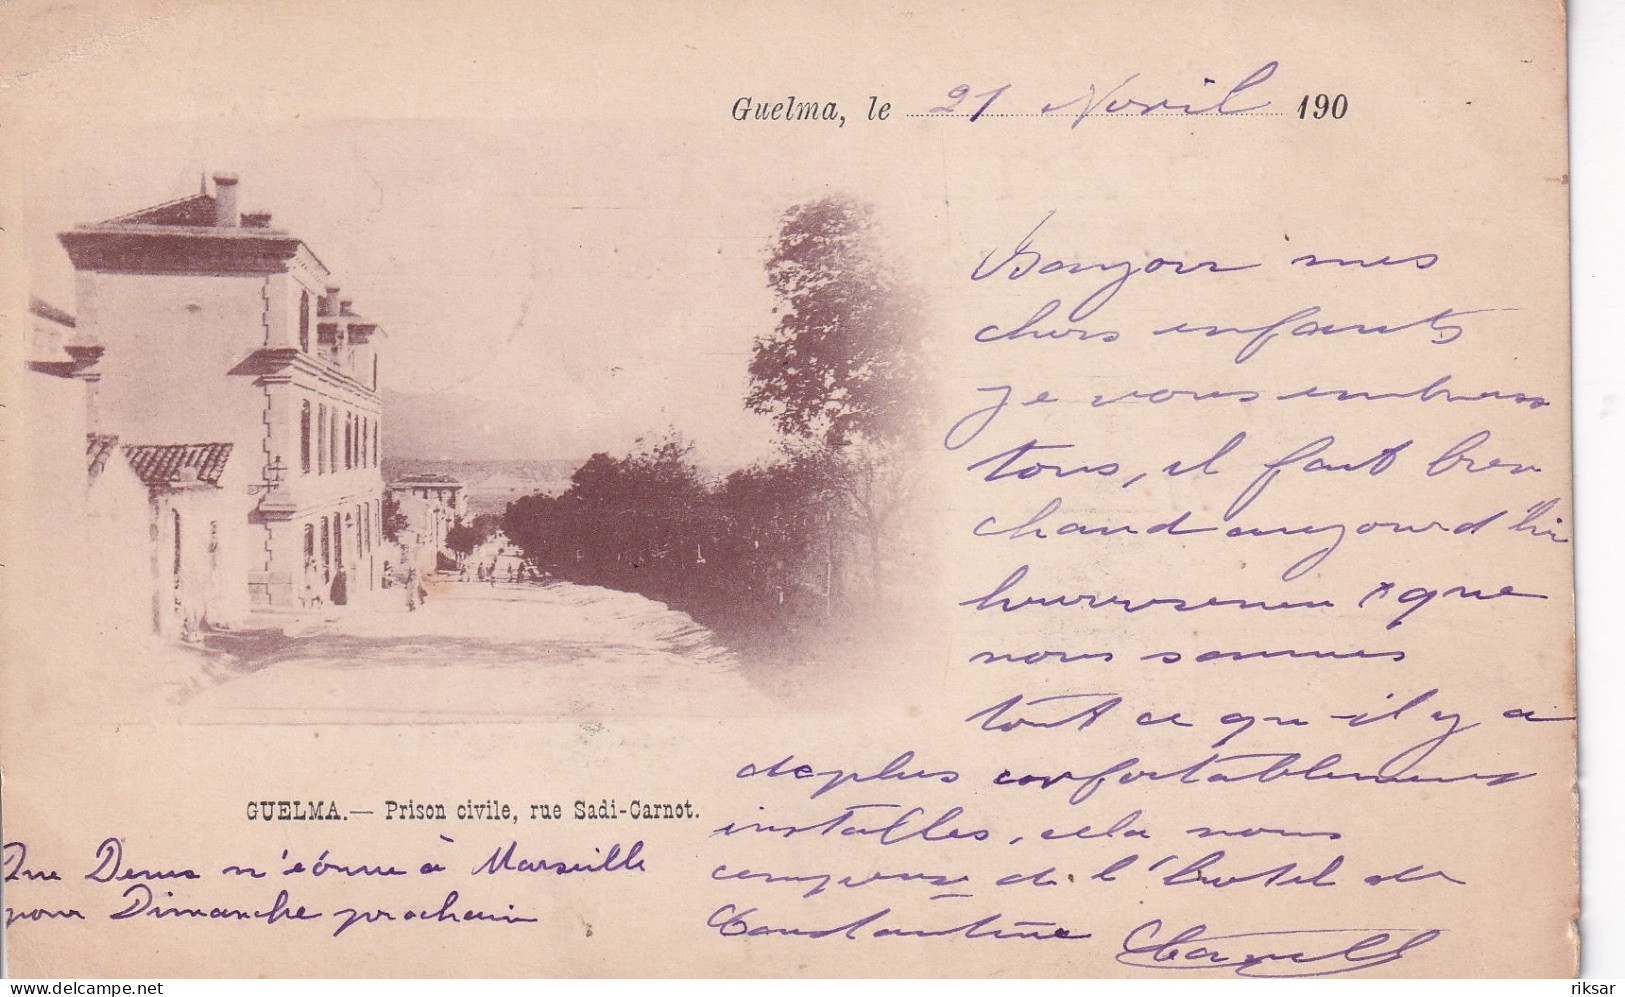 Guelma, le 21 Avril 190
Bonjour mes
chers enfants
je vous embrasse
tous, il fait bien
chaud aujourd'hui
heureusement que
nous sommes
tout ce qu'il y a
de plus confortablement
installés, cela nous
de l'hotel de
Constantine
GUELMA.— Prison civile, rue Sadi-Carnot.
Que Denis à Marseille
pour Dimanche prochain
delcampe.net
riksar